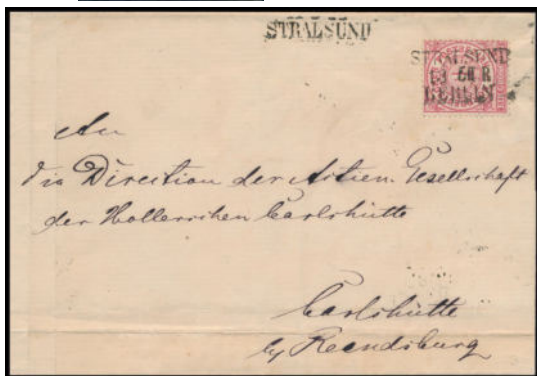 STRALSUND
STRALSUND
BERLIN
An
die Direction der Actien Gesellschaft
der Hollerschen Carlshütte
Carlshütte
by Reendsburg